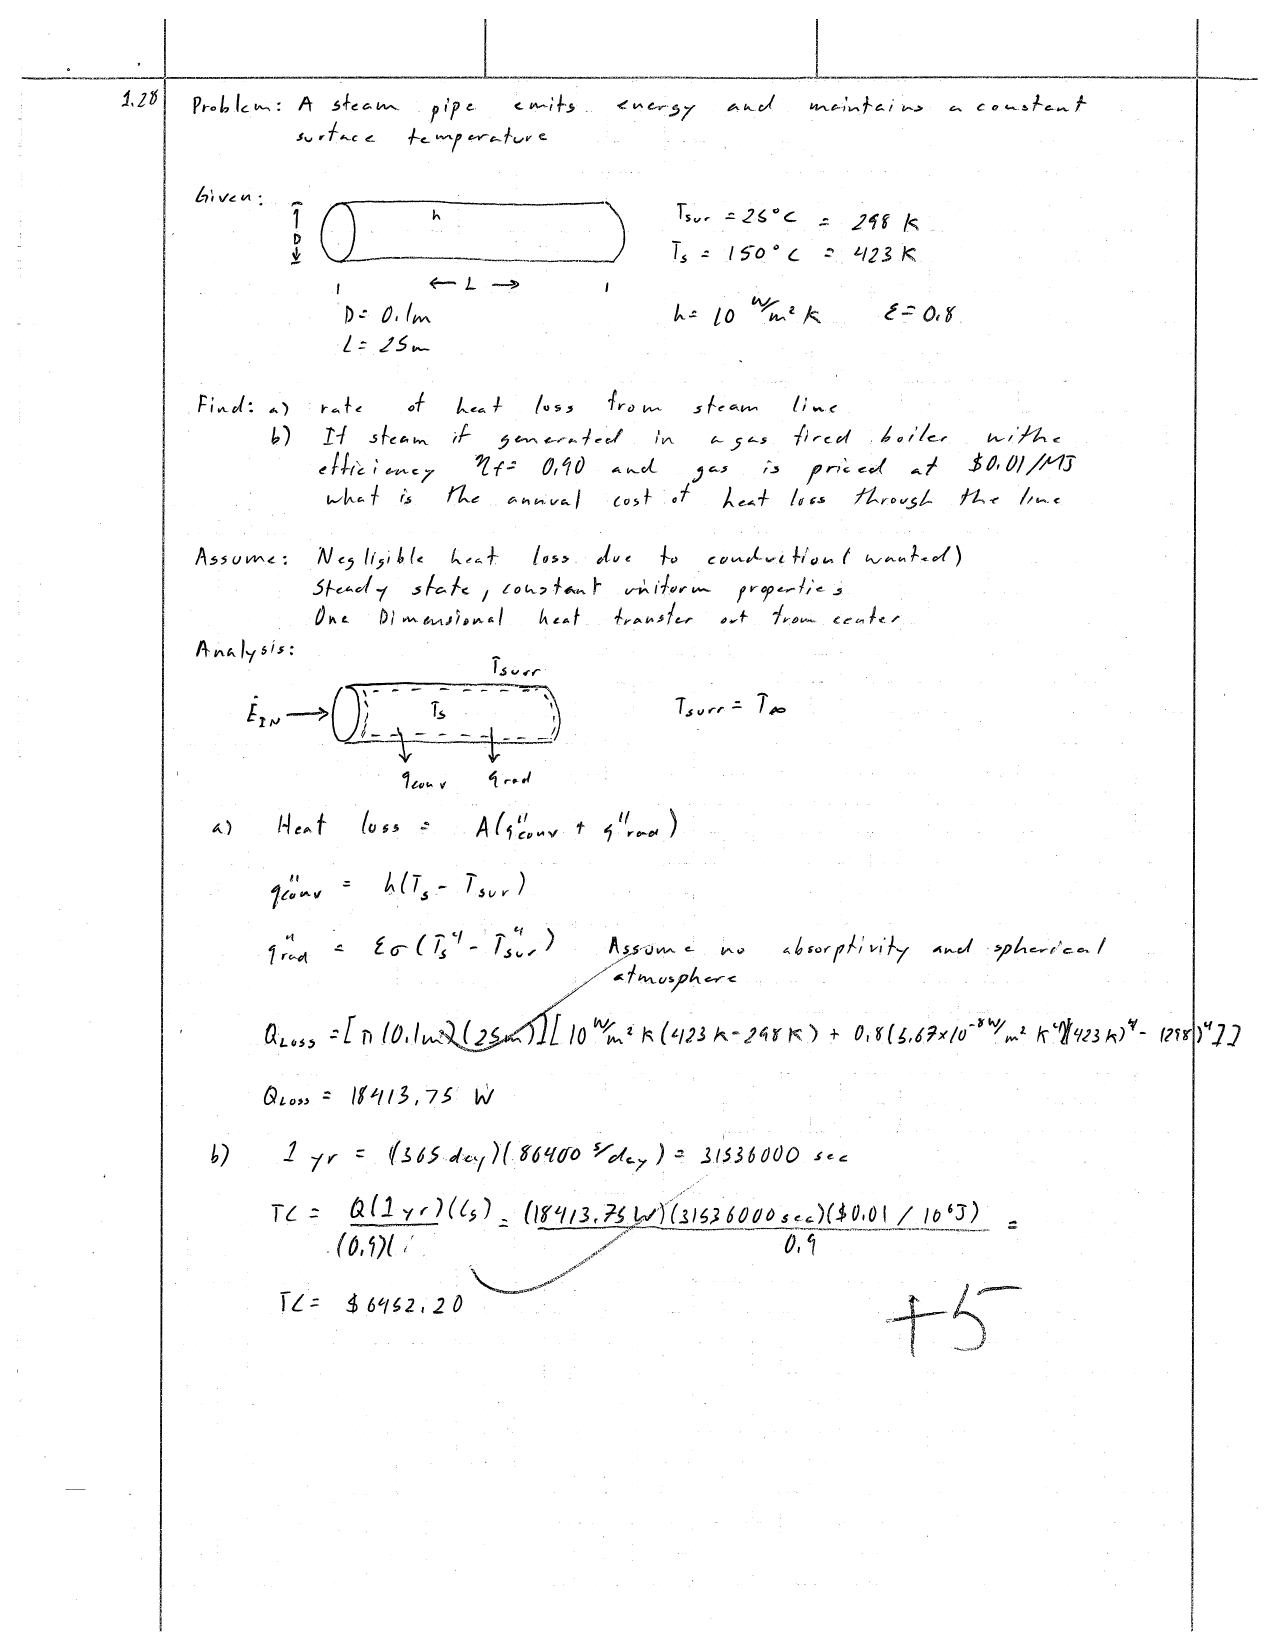 1.28
Problem: A steam pipe emits energy and maintains a constant
surface temperature
Given:
D
h
← L →
D = 0.1m
L = 25m
Tsur = 25°C = 298 K
Ts = 150°C = 423 K
h = 10 W/m² K   ε = 0.8
Find: a) rate of heat loss from steam line
b) If steam if generated in a gas fired boiler withe
efficiency ηf = 0.90 and gas is priced at $0.01/MJ
what is the annual cost of heat loss through the line
Assume: Negligible heat loss due to conduction (wanted)
Steady state, constant uniform properties
One Dimensional heat transfer out from center
Analysis:
Tsurr
Ts
ĖIN →
Tsurr = T∞
qconv qrad
a) Heat loss = A(q"conv + q"rad)
q"conv = h(Ts - Tsur)
q"rad = εσ(Ts⁴ - Tsur⁴) Assume no absorptivity and spherical
atmosphere
QLoss = [π(0.1m)(25m)][10 W/m² K (423 K - 298 K) + 0.8(5.67×10⁻⁸ W/m² K⁴)[(423 K)⁴ - (298)⁴]]
QLoss = 18413.75 W
b) 1 yr = (365 day)(86400 s/day) = 31536000 sec
TC = Q(1yr)(Cs) / (0.9) = (18413.75 W)(31536000 sec)($0.01 / 10⁶J) / 0.9 =
TC = $6452.20
+5